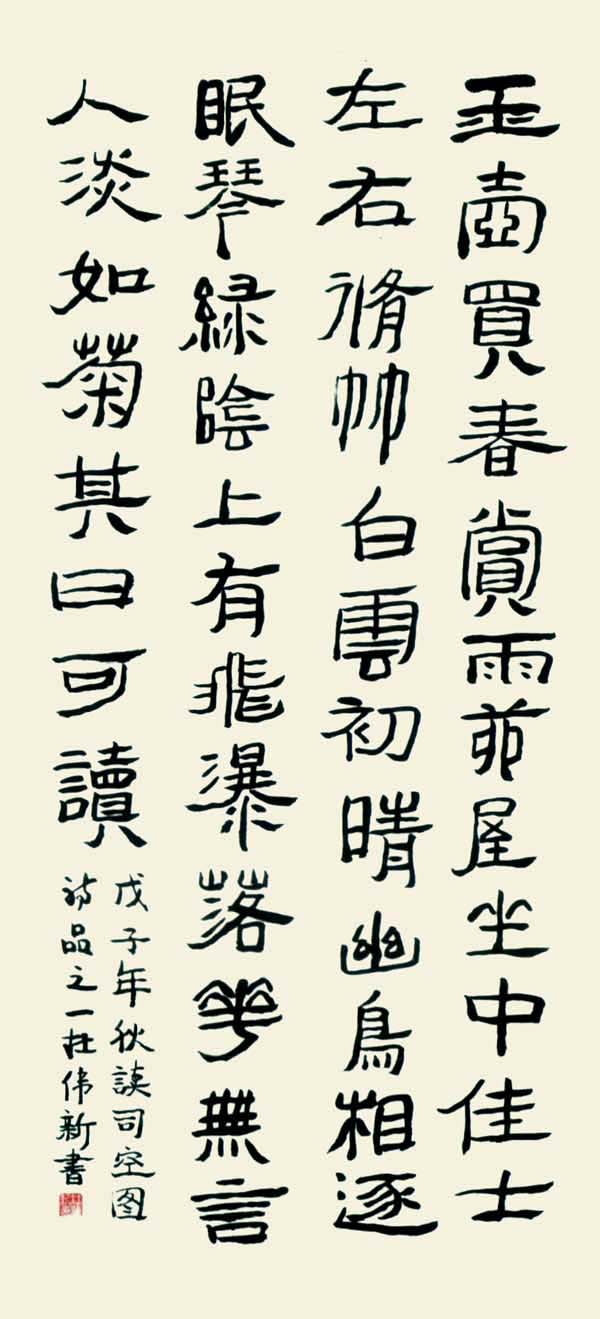 玉壺買春賞雨茆屋坐中佳士
左右脩竹白雲初晴幽鳥相逐
眠琴綠陰上有飛瀑落華無言
人淡如菊其曰可讀
戊子年秋读司空图
诗品之一杜伟新書